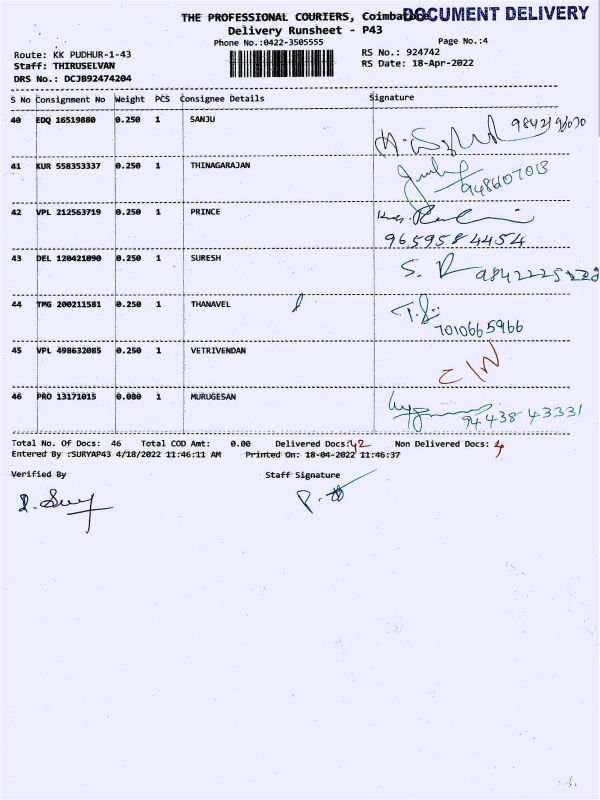 THE PROFESSIONAL COURIERS, Coimbatore
DOCUMENT DELIVERY
Delivery Runsheet - P43
Phone No.:0422-3505555
Page No.:4
Route: KK PUDHUR-1-43
RS No.: 924742
Staff: THIRUSELVAN
RS Date: 18-Apr-2022
DRS No.: DCJB92474204
S No Consignment No Weight PCS Consignee Details Signature
40 EDQ 16519880 0.250 1 SANJU
41 KUR 558353337 0.250 1 THINAGARAJAN
42 VPL 212563719 0.250 1 PRINCE
9659584454
43 DEL 120421090 0.250 1 SURESH
44 TMG 200211581 0.250 1 THANAVEL
7010665966
45 VPL 498632085 0.250 1 VETRIVENDAN
46 PRO 13171015 0.080 1 MURUGESAN
94438 43331
Total No. Of Docs: 46 Total COD Amt: 0.00 Delivered Docs: 42 Non Delivered Docs: 4
Entered By :SURYAP43 4/18/2022 11:46:11 AM Printed On: 18-04-2022 11:46:37
Verified By Staff Signature